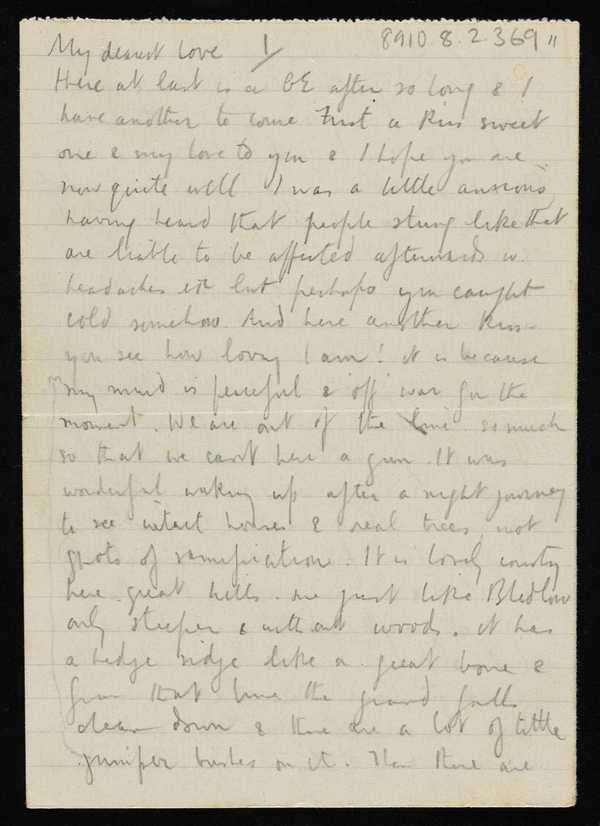 My dearest Love 1/ 8910.8.2.369 11
Here at last is a GE after so long & I
have another to come First a kiss sweet
one & my love to you & I hope you are
now quite well I was a little anxious
having heard that people stung like that
are liable to be affected afterwards w
headaches etc but perhaps you caught
cold somehow. And here another kiss –
you see how loving I am! it is because
my mind is peaceful & 'off' war for the
moment. We are out of the line so much
so that we can't hear a gun. It was
wonderful waking up after a night journey
to see intact houses & real trees, not
spots of ramification. It is lovely country
here great hills. one just like Bledlow
only steeper & without woods. it has
a hedge ridge like a great bone &
from that bone the ground falls
clean down & there are a lot of little
juniper bushes on it. Then there are